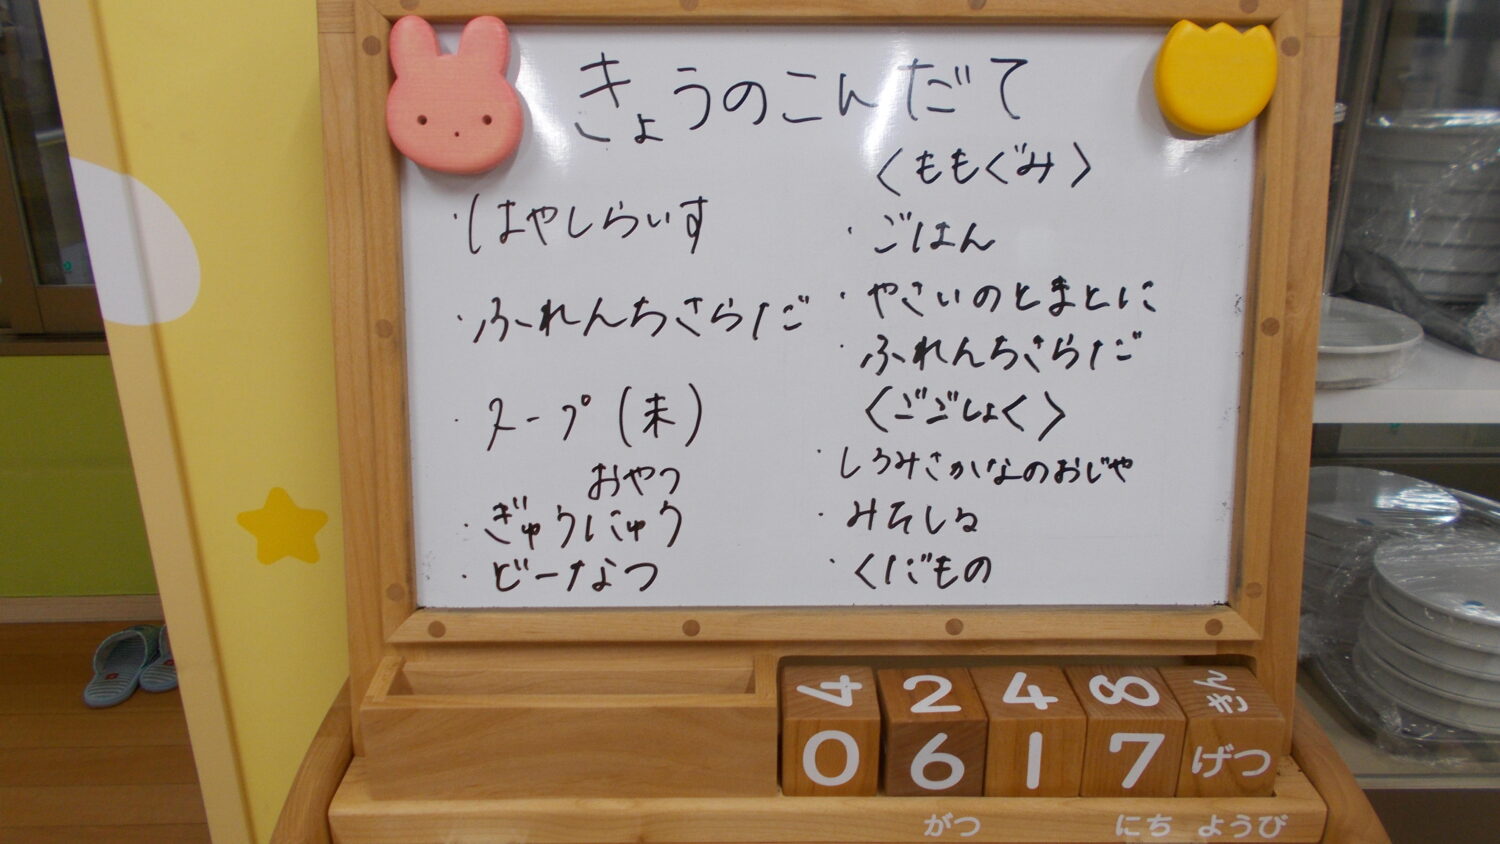 きょうのこんだて
・はやしらいす
・ふれんちさらだ
・スープ(未)
おやつ
・ぎゅうにゅう
・どーなつ
〈ももぐみ〉
・ごはん
・やさいのとまとに
・ふれんちさらだ
〈ごごしょく〉
・しろみさかなのおじや
・みそしる
・くだもの
4 2 4 8 きん
0 6 1 7 げつ
がつ にち ようび